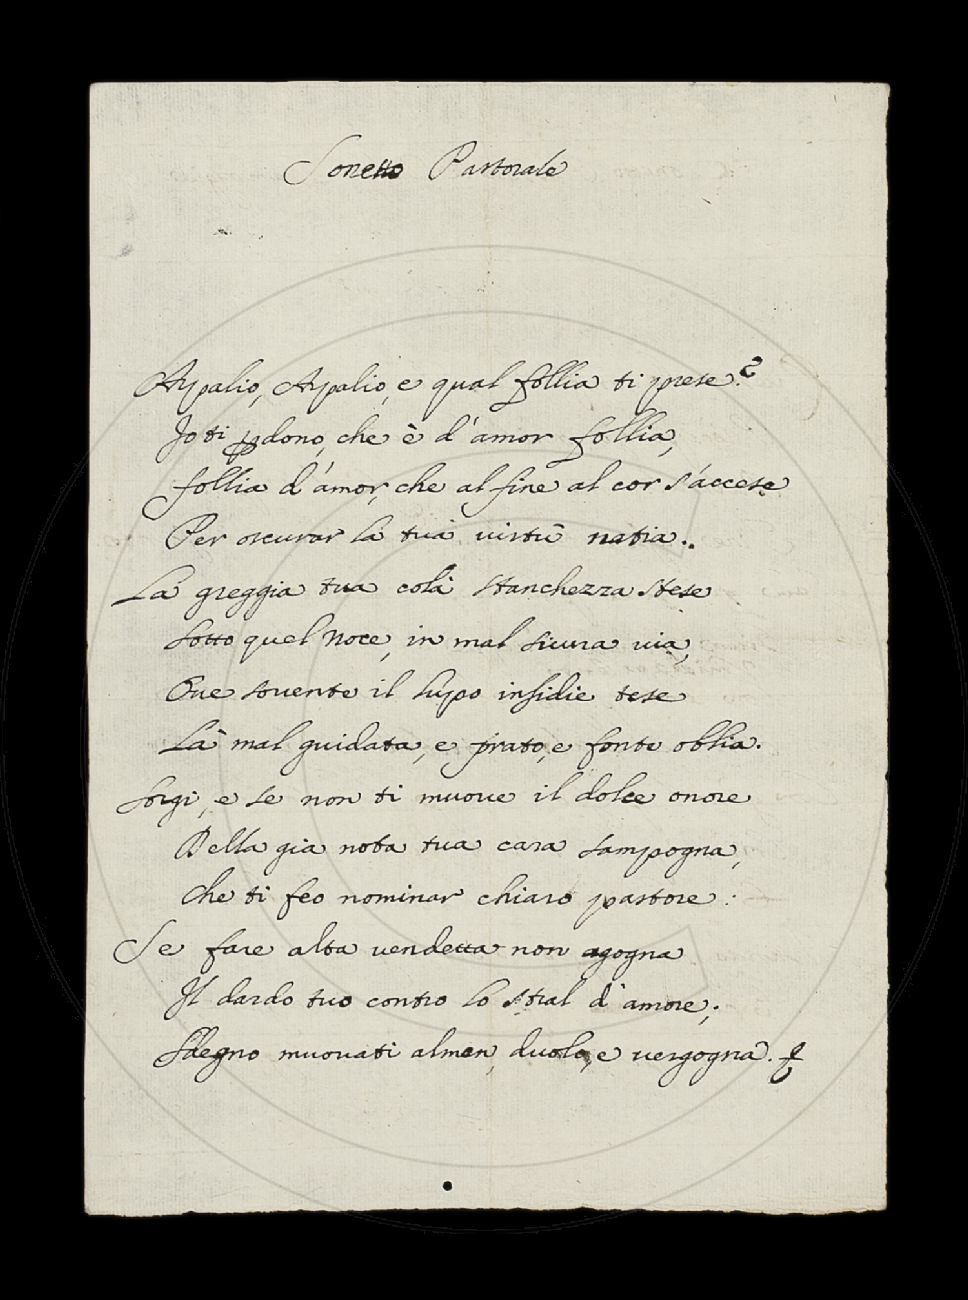 Sonetto Pastorale
Arpalio, Arpalio, e qual follia ti prese?
Io ti pdono, che è d'amor follia,
follia d'amor, che al fine al cor s'accese
Per oscurar la tua virtù natia.
La greggia tua colà stanchezza stese
Sotto quel Noce, in mal sicura via,
Ove sovente il lupo insidie tese
Là mal guidata, e prato, e fonte oblia.
Sorgi, e se non ti muove il dolce onore
Della già nota tua cara sampogna,
che ti feo nominar chiaro pastore:
Se fare alta vendetta non agogna
Il dardo tuo contro lo stral d'amore;
Sdegno muovati almen, duolo, e vergogna.